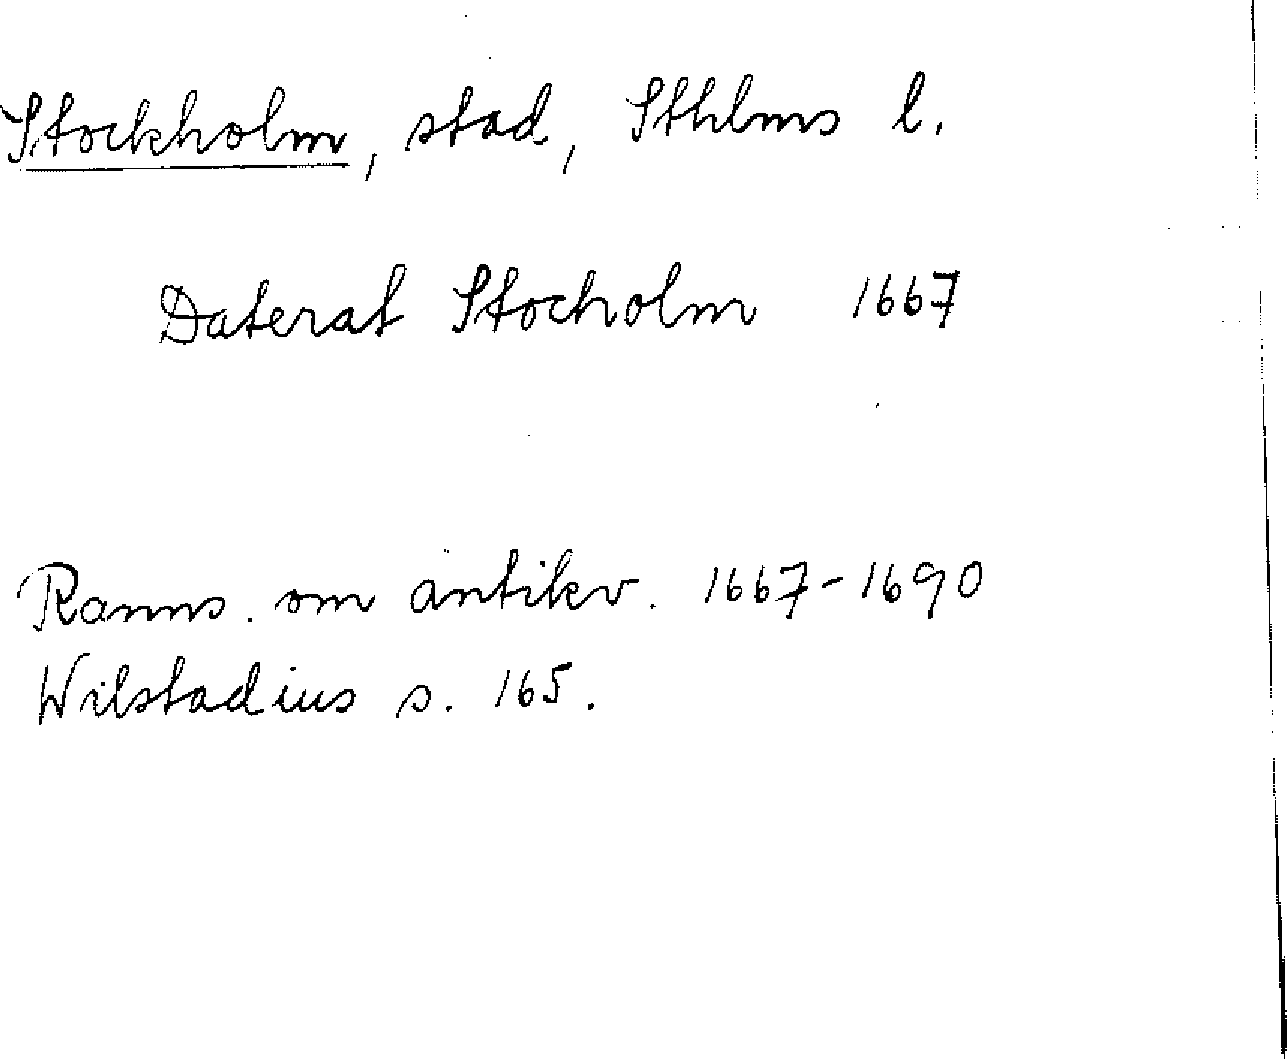 Stockholm, stad, Sthlms l.
Daterat Stocholm 1667
Ranns. om antikv. 1667-1690
Wilstadius s. 165.